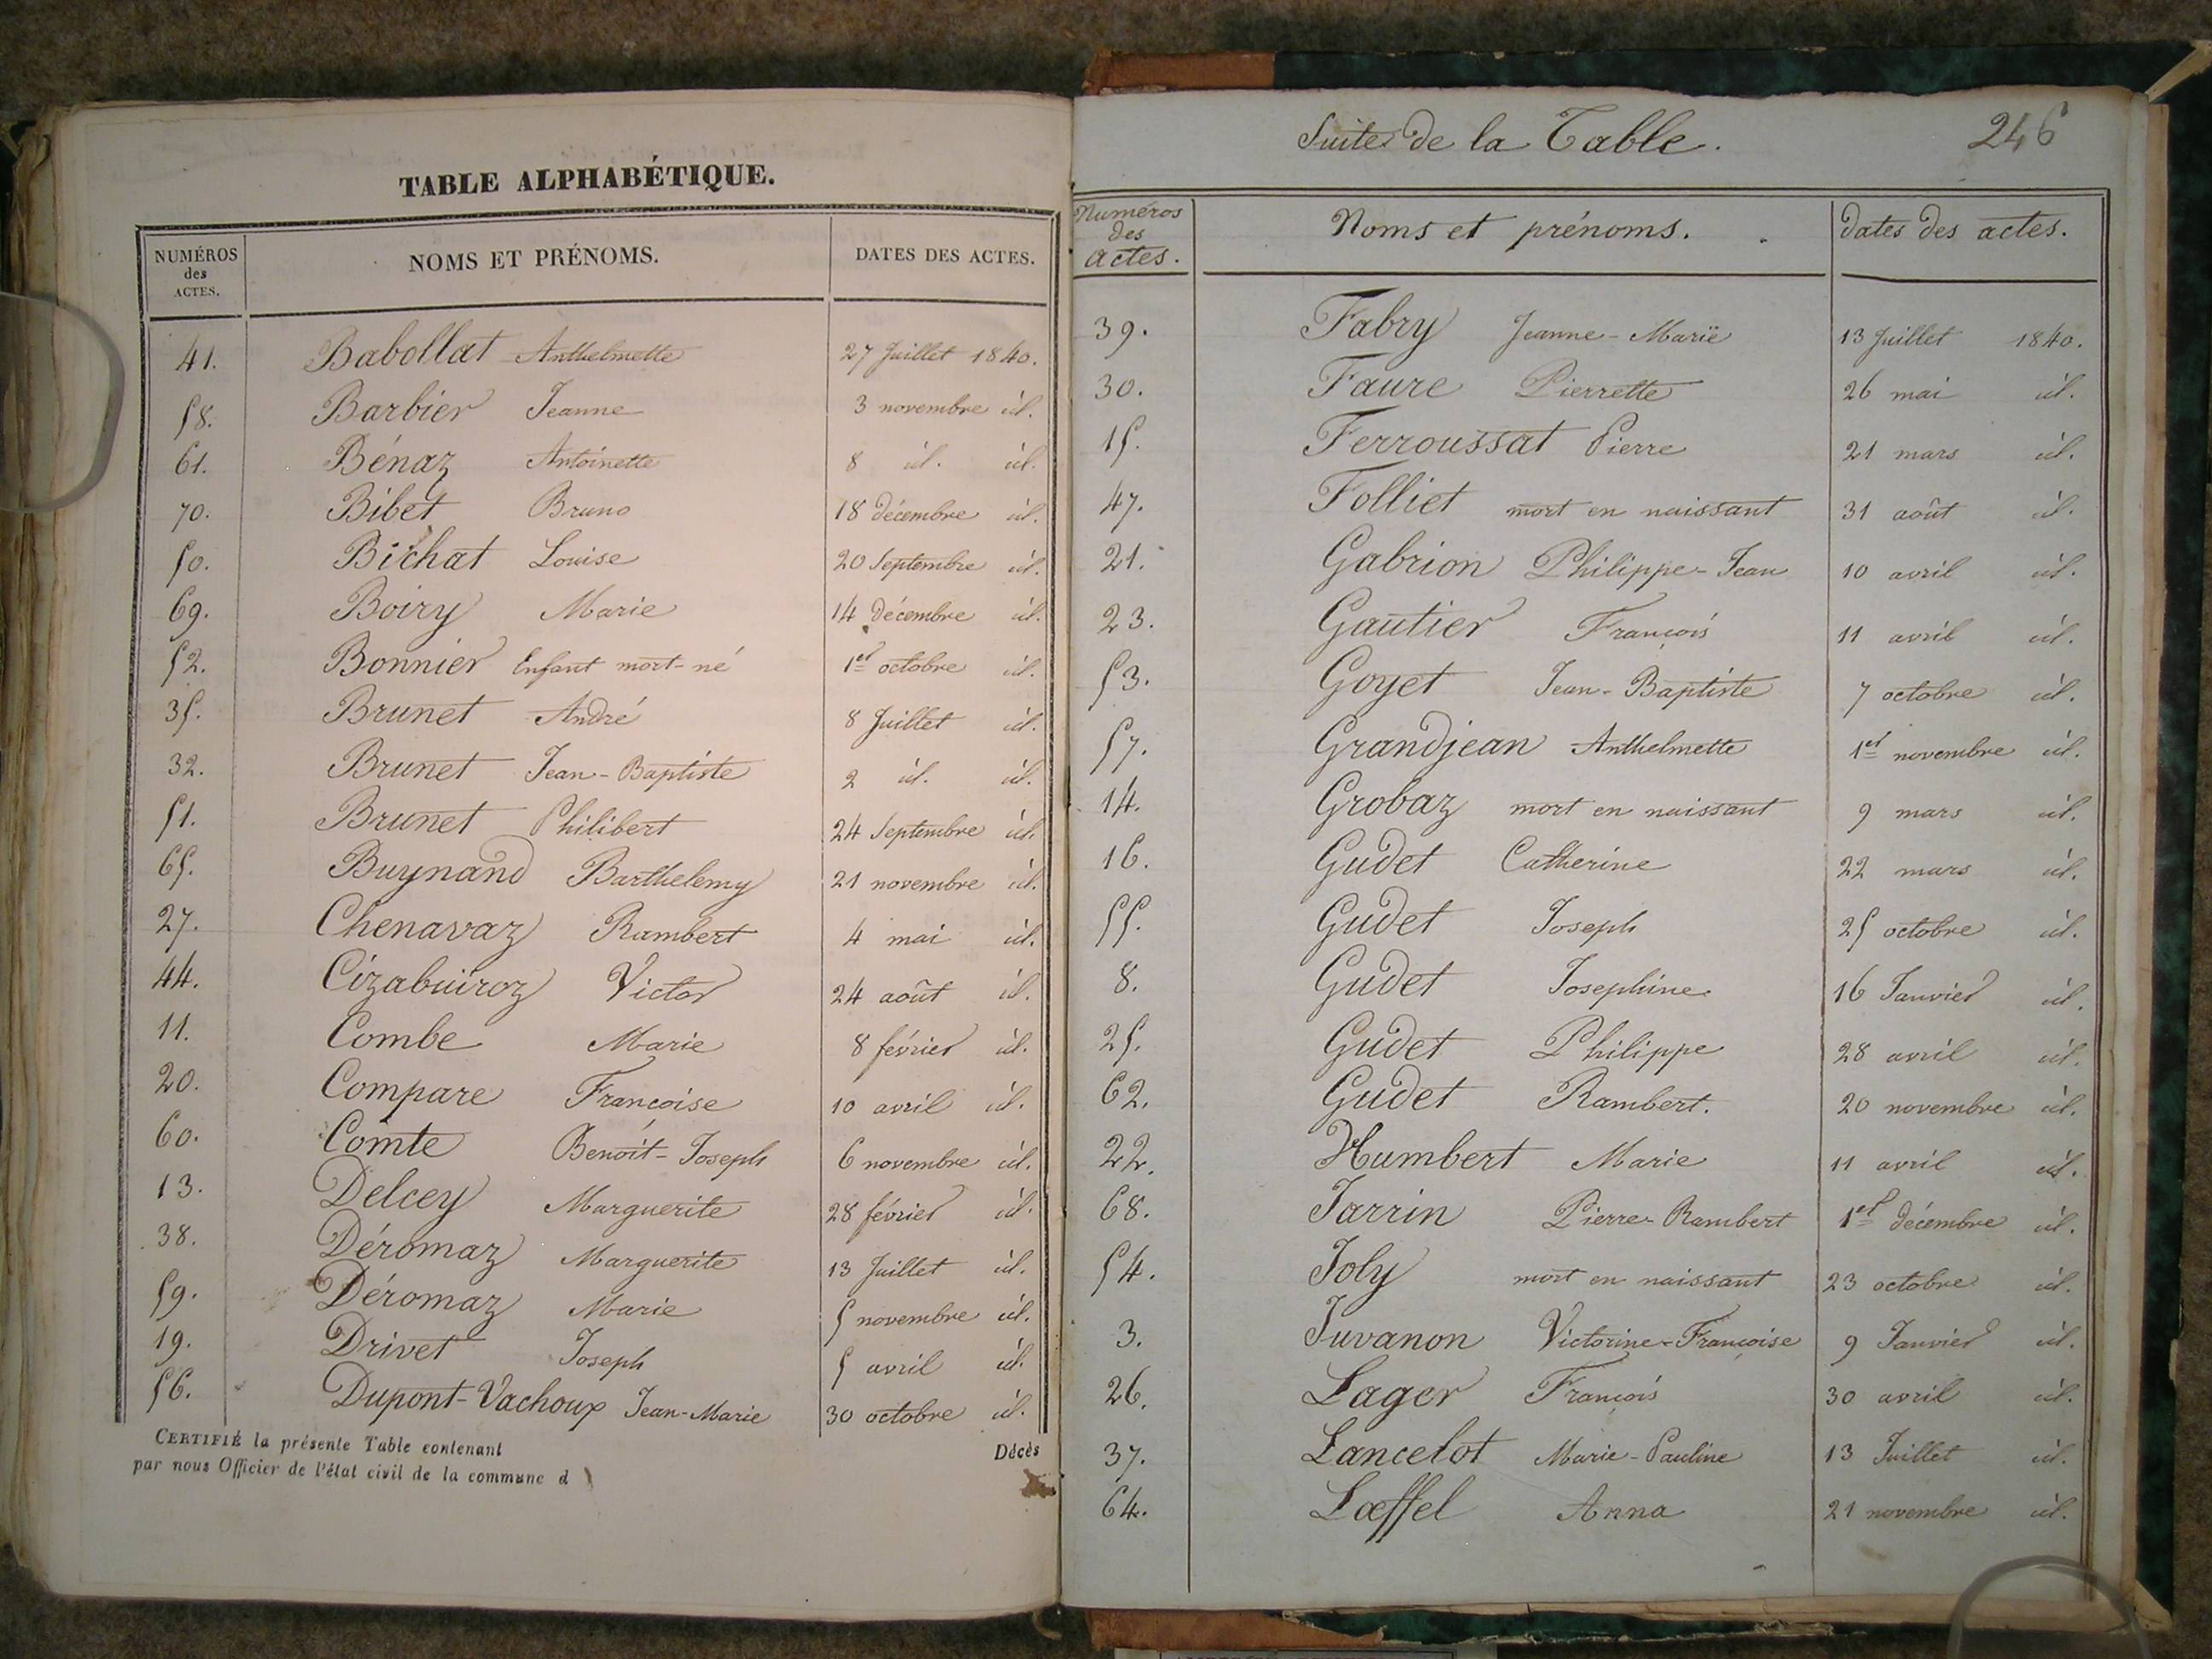 TABLE ALPHABÉTIQUE.
NUMÉROS des ACTES. NOMS ET PRÉNOMS. DATES DES ACTES.
41. Babollat Anthelmette 27 Juillet 1840.
58. Barbier Jeanne 3 novembre id.
61. Bénaz Antoinette 8 id. id.
70. Bibet Bruno 18 décembre id.
50. Bichat Louise 20 Septembre id.
69. Boiry Marie 14 décembre id.
52. Bonnier Enfant mort-né 1er octobre id.
35. Brunet André 8 Juillet id.
32. Brunet Jean-Baptiste 2 id. id.
51. Brunet Philibert 24 Septembre id.
65. Buynand Barthelemy 21 novembre id.
27. Chenavaz Rambert 4 mai id.
44. Cizabuiroz Victor 24 août id.
11. Combe Marie 8 février id.
20. Compare Françoise 10 avril id.
60. Comte Benoît-Joseph 6 novembre id.
13. Delcey Marguerite 28 février id.
38. Déromaz Marguerite 13 Juillet id.
59. Déromaz Marie 5 novembre id.
19. Drivet Joseph 5 avril id.
56. Dupont-Vachoux Jean-Marie 30 octobre id.
CERTIFIÉ la présente Table contenant Décès
par nous Officier de l'état civil de la commune d
Suite de la Table. 246
Numéros des actes. Noms et prénoms. dates des actes.
39. Fabry Jeanne-Marie 13 Juillet 1840.
30. Faure Pierrette 26 mai id.
15. Ferroussat Pierre 21 mars id.
47. Folliet mort en naissant 31 août id.
21. Gabrion Philippe-Jean 10 avril id.
23. Gautier François 11 avril id.
53. Goyet Jean-Baptiste 7 octobre id.
57. Grandjean Anthelmette 1er novembre id.
14. Grobaz mort en naissant 9 mars id.
16. Gudet Catherine 22 mars id.
55. Gudet Joseph 25 octobre id.
8. Gudet Josephine 16 Janvier id.
25. Gudet Philippe 28 avril id.
62. Gudet Rambert. 20 novembre id.
22. Humbert Marie 11 avril id.
68. Jarrin Pierre-Rambert 1er décembre id.
54. Joly mort en naissant 23 octobre id.
3. Juvanon Victorine-Françoise 9 Janvier id.
26. Lager François 30 avril id.
37. Lancelot Marie-Pauline 13 Juillet id.
64. Lœffel Anna 21 novembre id.